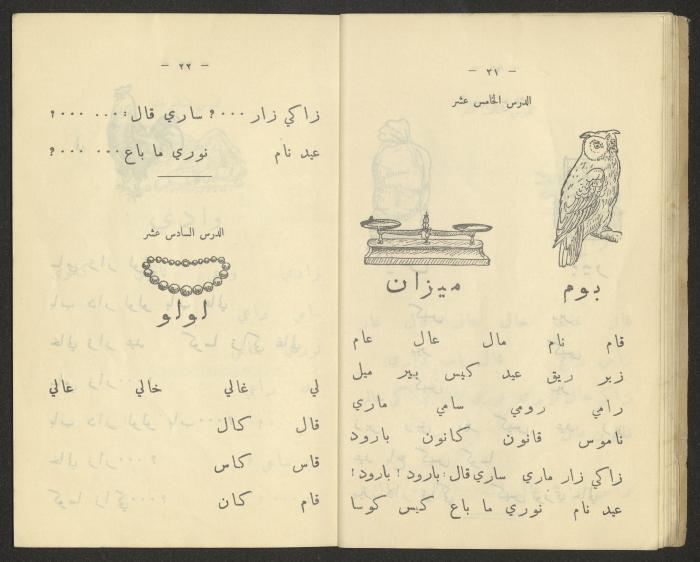 — ٢١ —
الدرس الخامس عشر
بوم ميزان
قام نام مال عال عام
زير ريق عيد كيس بير ميل
رامي رومي سامي ماري
ناموس قانون كانون بارود
زاكي زار ماري ساري قال: بارود! بارود!
عيد نام نوري ما باع كيس كوسا
— ٢٢ —
زاكي زار ٠٠٠؟ ساري قال: ٠٠٠ ٠٠٠؟
عيد نام نوري ما باع ٠٠٠ ٠٠٠؟
الدرس السادس عشر
لولو
لي غالي خالي عالي
قال كال
قاس كاس
قام كان